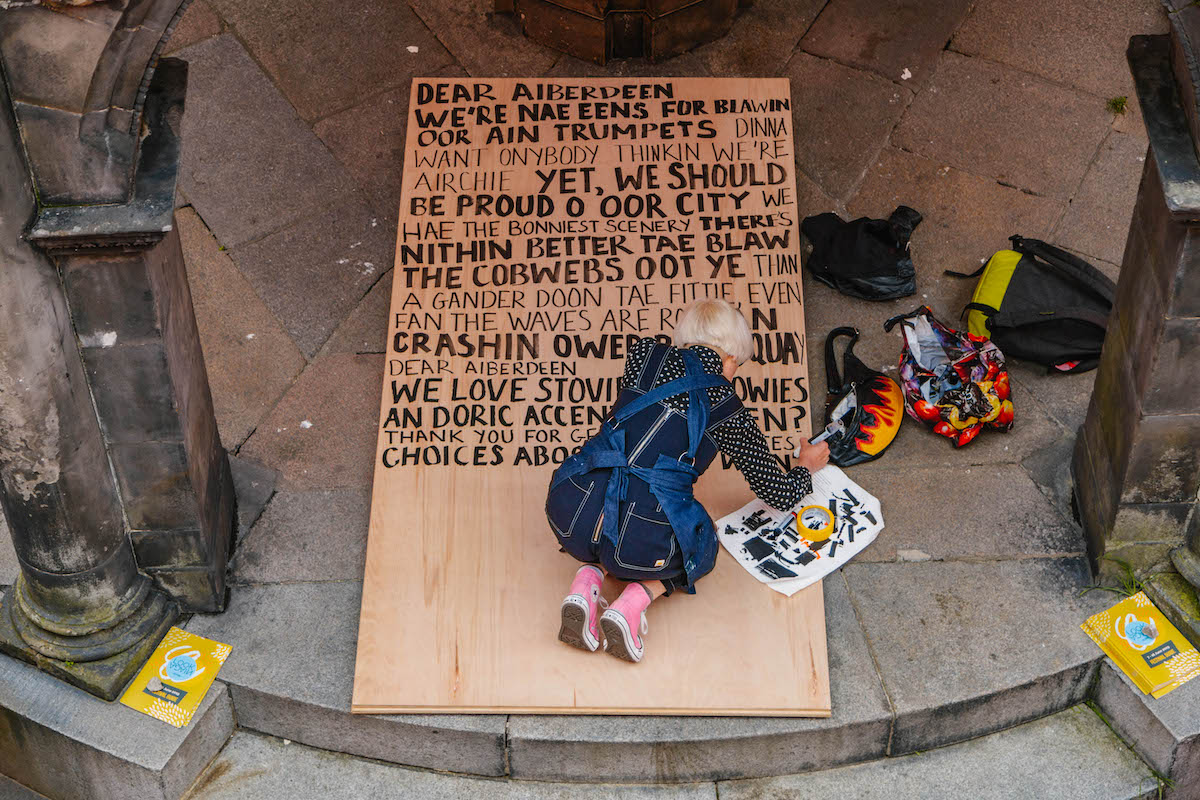 DEAR AIBERDEEN
WE'RE NAE EENS FOR BLAWIN
OOR AIN TRUMPETS DINNA
WANT ONYBODY THINKIN WE'RE
AIRCHIE YET, WE SHOULD
BE PROUD O OOR CITY WE
HAE THE BONNIEST SCENERY THERE'S
NITHIN BETTER TAE BLAW
THE COBWEBS OOT YE THAN
A GANDER DOON TAE FITTIE, EVEN
FAN THE WAVES ARE
CRASHIN QUAY
DEAR AIBERDEEN
WE LOVE
AN DORIC
THANK YOU FOR
CHOICES